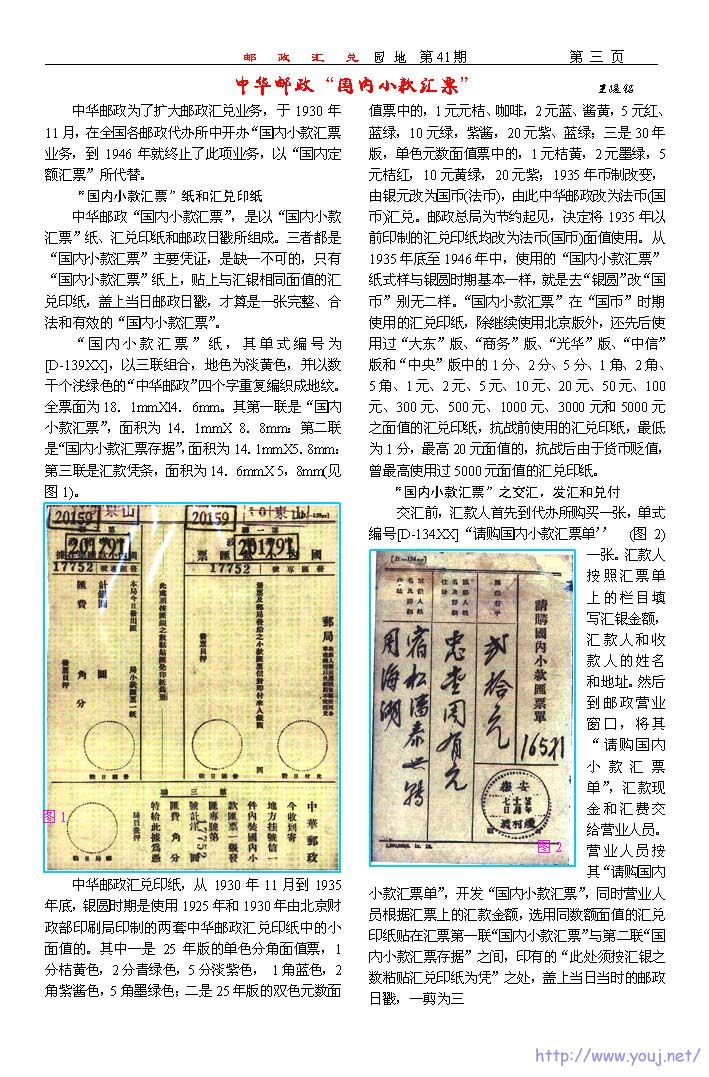 邮 政 汇 兑 园 地 第41期 第 三 页
中华邮政“国内小款汇票”
中华邮政为了扩大邮政汇兑业务，于 1930 年
11月，在全国各邮政代办所中开办“国内小款汇票
业务，到 1946 年就终止了此项业务，以“国内定
额汇票”所代替。
“国内小款汇票”纸和汇兑印纸
中华邮政“国内小款汇票”，是以“国内小款
汇票”纸、汇兑印纸和邮政日戳所组成。三者都是
“国内小款汇票”主要凭证，是缺一不可的，只有
“国内小款汇票”纸上，贴上与汇银相同面值的汇
兑印纸，盖上当日邮政日戳，才算是一张完整、合
法和有效的“国内小款汇票”。
“国内小款汇票”纸，其单式编号为
[D-139XX]，以三联组合，地色为淡黄色，并以数
千个浅绿色的“中华邮政”四个字重复编织成地纹。
全票面为18．1mmX14．6mm。其第一联是“国内
小款汇票”，面积为 14．1mmX 8．8mm：第二联
是“国内小款汇票存据”，面积为 14．1mmX5．8mm：
第三联是汇款凭条，面积为14．6mmX 5，8mm(见
图 1)。
山東
20159
20159
[D—139
201791
201791
17752
17752
郵局
匯費 角 分
第 三 聯
中華郵政
今收到寄
地方掛號信一
件內裝國內小
款匯票一張發
匯專號第
17752
號計洋 圓
匯費 角 分
特給此據為憑
图 1
中华邮政汇兑印纸，从 1930 年 11 月到 1935
年底，银圆时期是使用 1925 年和 1930 年由北京财
政部印刷局印制的两套中华邮政汇兑印纸中的小
面值的。其中一是 25 年版的单色分角面值票，1
分桔黄色，2分青绿色，5分淡紫色， 1角蓝色，2
角紫酱色，5角墨绿色；二是25年版的双色元数面
值票中的，1元元桔、咖啡，2元蓝、酱黄，5元红、
蓝绿，10 元绿，紫酱，20元紫、蓝绿；三是 30年
版，单色元数面值票中的，1元桔黄，2元墨绿，5
元桔红，10 元黄绿，20 元紫；1935 年币制改变，
由银元改为国币(法币)，由此中华邮政改为法币(国
币)汇兑。邮政总局为节约起见，决定将 1935 年以
前印制的汇兑印纸均改为法币(国币)面值使用。从
1935年底至1946年中，使用的“国内小款汇票”
纸式样与银圆时期基本一样，就是去“银圆”改“国
币”别无二样。“国内小款汇票”在“国币”时期
使用的汇兑印纸，除继续使用北京版外，还先后使
用过“大东”版、“商务”版、“光华”版、“中信”
版和“中央”版中的 1分、2分、5分、1 角、2角、
5角、1元、2元、5元、10元、20元、50元、100
元、300 元、500元、1000 元、3000 元和 5000 元
之面值的汇兑印纸，抗战前使用的汇兑印纸，最低
为 1 分，最高 20 元面值的，抗战后由于货币贬值，
曾最高使用过 5000 元面值的汇兑印纸。
“国内小款汇票”之交汇，发汇和兑付
交汇前，汇款人首先到代办所购买一张，单式
编号[D-134XX]“请购国内小款汇票单’’ (图 2)
一张。汇款人
按照汇票单
上的栏目填
写汇银金额，
汇款人和收
款人的姓名
和地址。然后
到邮政营业
窗口，将其
“请购国内
小款汇票
单”，汇款现
金和汇费交
给营业人员。
营业人员按
其“请购国内
請購國內小款匯票單
16521
图 2
小款汇票单”，开发“国内小款汇票”，同时营业人
员根据汇票上的汇款金额，选用同数额面值的汇兑
印纸贴在汇票第一联“国内小款汇票”与第二联“国
内小款汇票存据”之间，印有的“此处须按汇银之
数粘贴汇兑印纸为凭”之处，盖上当日当时的邮政
日戳，一剪为三
http://www.youj.net/